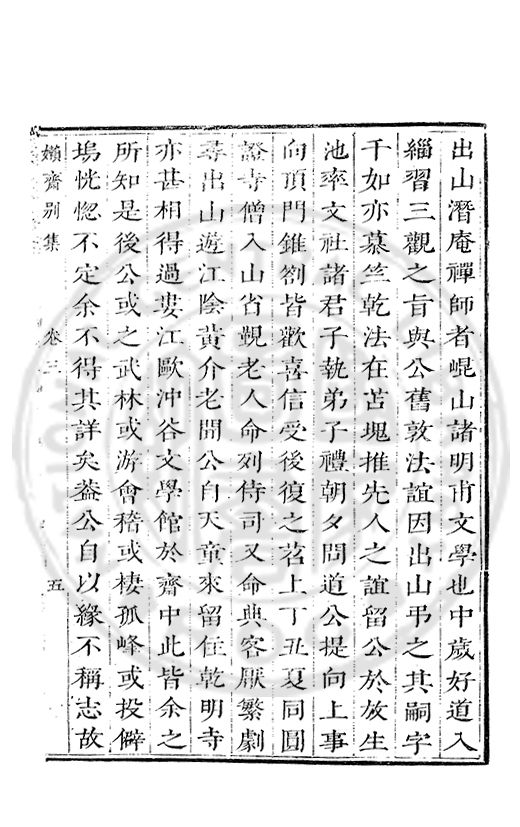 出山潛庵禪師者崐山諸明甫文學也中歲好道入
緇習三觀之旨與公舊敦法誼因出山弔之其嗣字
千如亦慕竺乾法在苫塊推先人之誼留公於放生
池率文社諸君子執弟子禮朝夕問道公提向上事
向頂門錐劄皆歡喜信受後復之茗上丁丑夏同圓
證寺僧入山省覲老人命列侍司又命典客厭繁劇
尋出山遊江陰黃介老聞公自天童來留住乾明寺
亦甚相得過婁江歐沖谷文學館於齋中此皆余之
所知是後公或之武林或游會稽或棲孤峰或投僻
塢恍惚不定余不得其詳矣葢公自以緣不稱志故
嬾齋別集 卷三 五